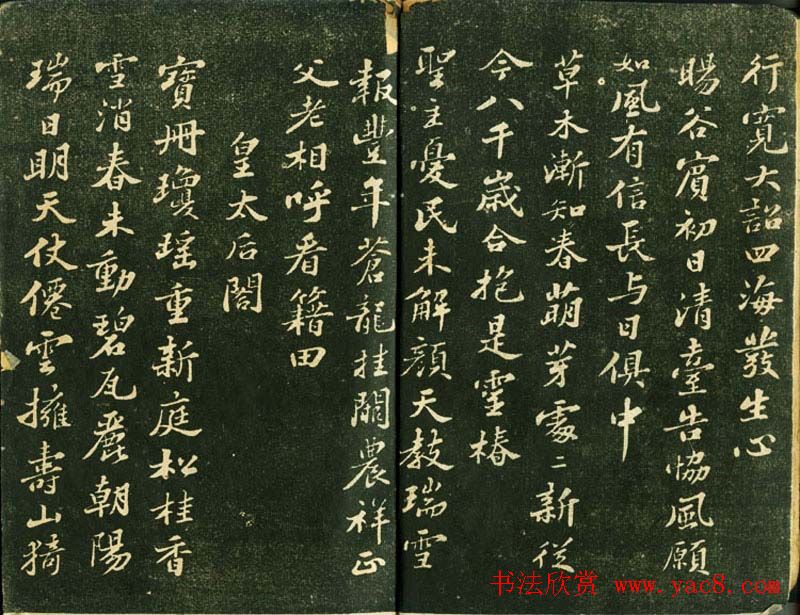 行寬大詔四海發生心
暘谷賓初日清臺告協風願
如風有信長与日俱中
草木漸知春萌芽處〻新從
今八千歲合抱是靈椿
聖主憂民未解顏天教瑞雪
報豐年蒼龍挂闕農祥正
父老相呼看籍田
皇太后閤
寶冊瓊瑤重新庭松桂香
雪消春未動碧瓦麗朝陽
瑞日明天仗僊雲擁壽山猗
书法欣赏 www.yac8.com